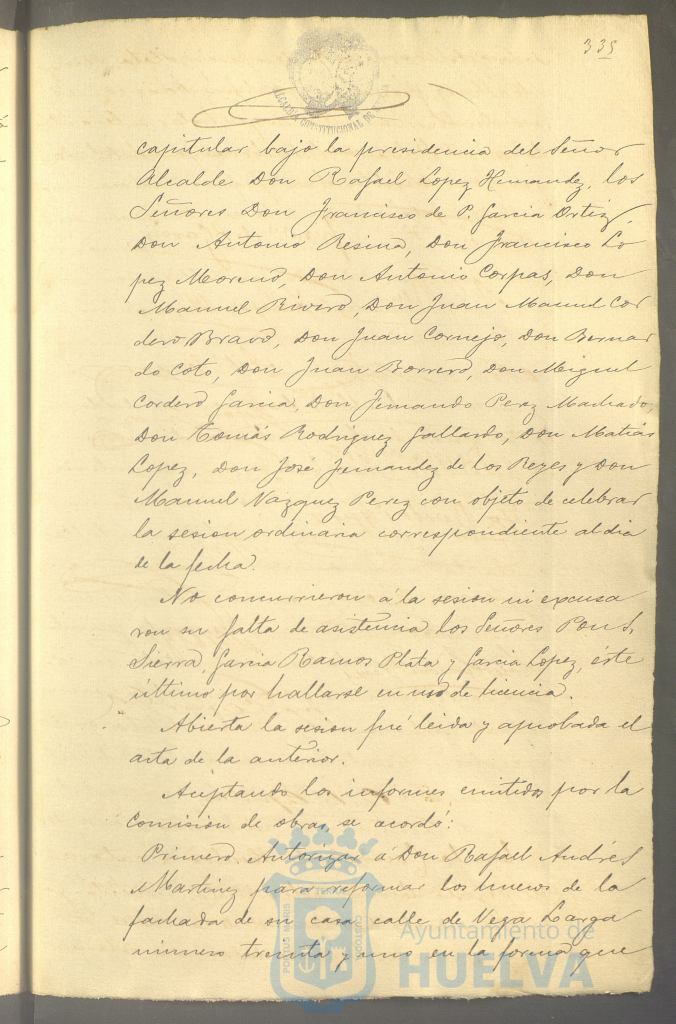 335
ALCALDIA CONSTITUCIONAL DE
capitular bajo la presidencia del Señor
Alcalde Don Rafael Lopez Hernandez, los
Señores Don Francisco de P. Garcia Ortiz,
Don Antonio Resina, Don Francisco Lo
pez Moreno, Don Antonio Corpas, Don
Manuel Rivero, Don Juan Manuel Cor
dero Bravo, Don Juan Cornejo, Don Bernar
do Coto, Don Juan Borrero, Don Miguel
Cordero Garcia, Don Fernando Perez Machado,
Don Tomás Rodriguez Gallardo, Don Matias
Lopez, Don José Fernandez de los Reyes y Don
Manuel Vazquez Perez con objeto de celebrar
la sesion ordinaria correspondiente al dia
de la fecha.
No concurrieron á la sesion ni excusa
ron su falta de asistencia los Señores Pons,
Sierra, Garcia Ramos Plata y Garcia Lopez, éste
último por hallarse en uso de licencia.
Abierta la sesion fué leida y aprobada el
acta de la anterior.
Aceptando los informes emitidos por la
Comision de obras, se acordó:
Primero. Autorizar á Don Rafael Andrés
Martinez para reformar los huecos de la
fachada de su casa calle de Vega Larga
número treinta y uno en la forma que
Ayuntamiento de
HUELVA
PORTUS MARIS
CUSTODIA